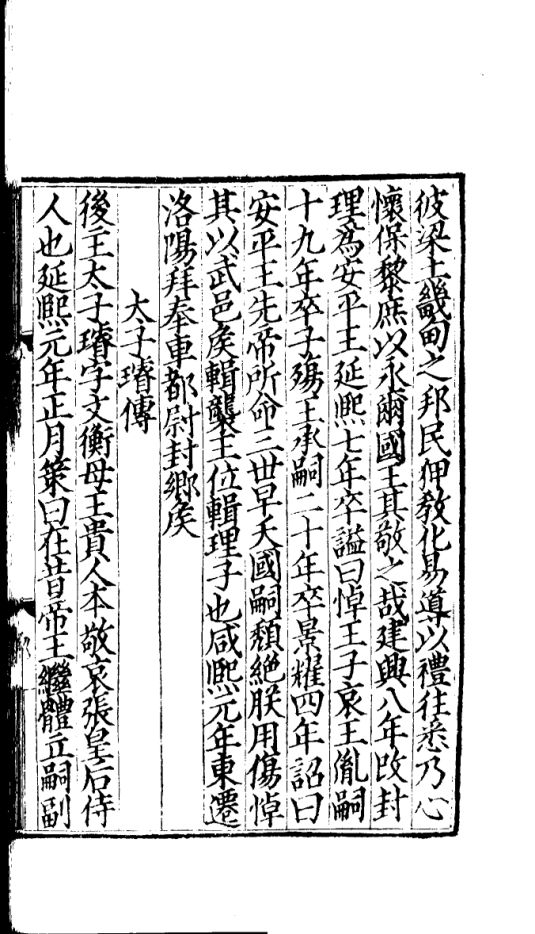 彼梁土畿甸之邦民狎敎化易導以禮往悉乃心
懷保黎庶以永爾國王其敬之哉建興八年改封
理爲安平王延熙七年卒謚曰悼王子哀王胤嗣
十九年卒子殤王承嗣二十年卒景耀四年詔曰
安平王先帝所命三世早夭國嗣頽絶朕用傷悼
其以武邑矦輯襲王位輯理子也咸熙元年東遷
洛陽拜奉車都尉封鄉矦
太子璿傳
後主太子璿字文衡母王貴人本敬哀張皇后侍
人也延熙元年正月策曰在昔帝王繼體立嗣副